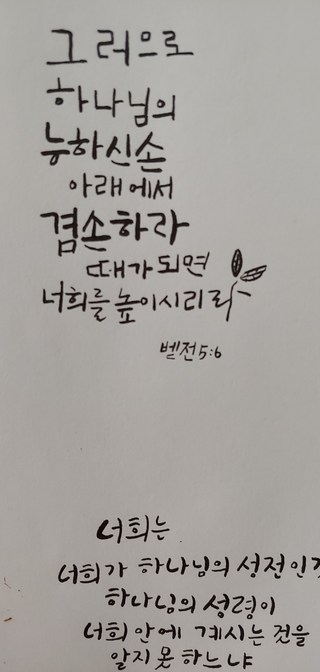 그러므로
하나님의
능하신손
아래에서
겸손하라
때가되면
너희를 높이시리라
벧전5:6
너희는
너희가 하나님의 성전인
하나님의 성령이
너희 안에 계시는 것을
알지 못하느냐